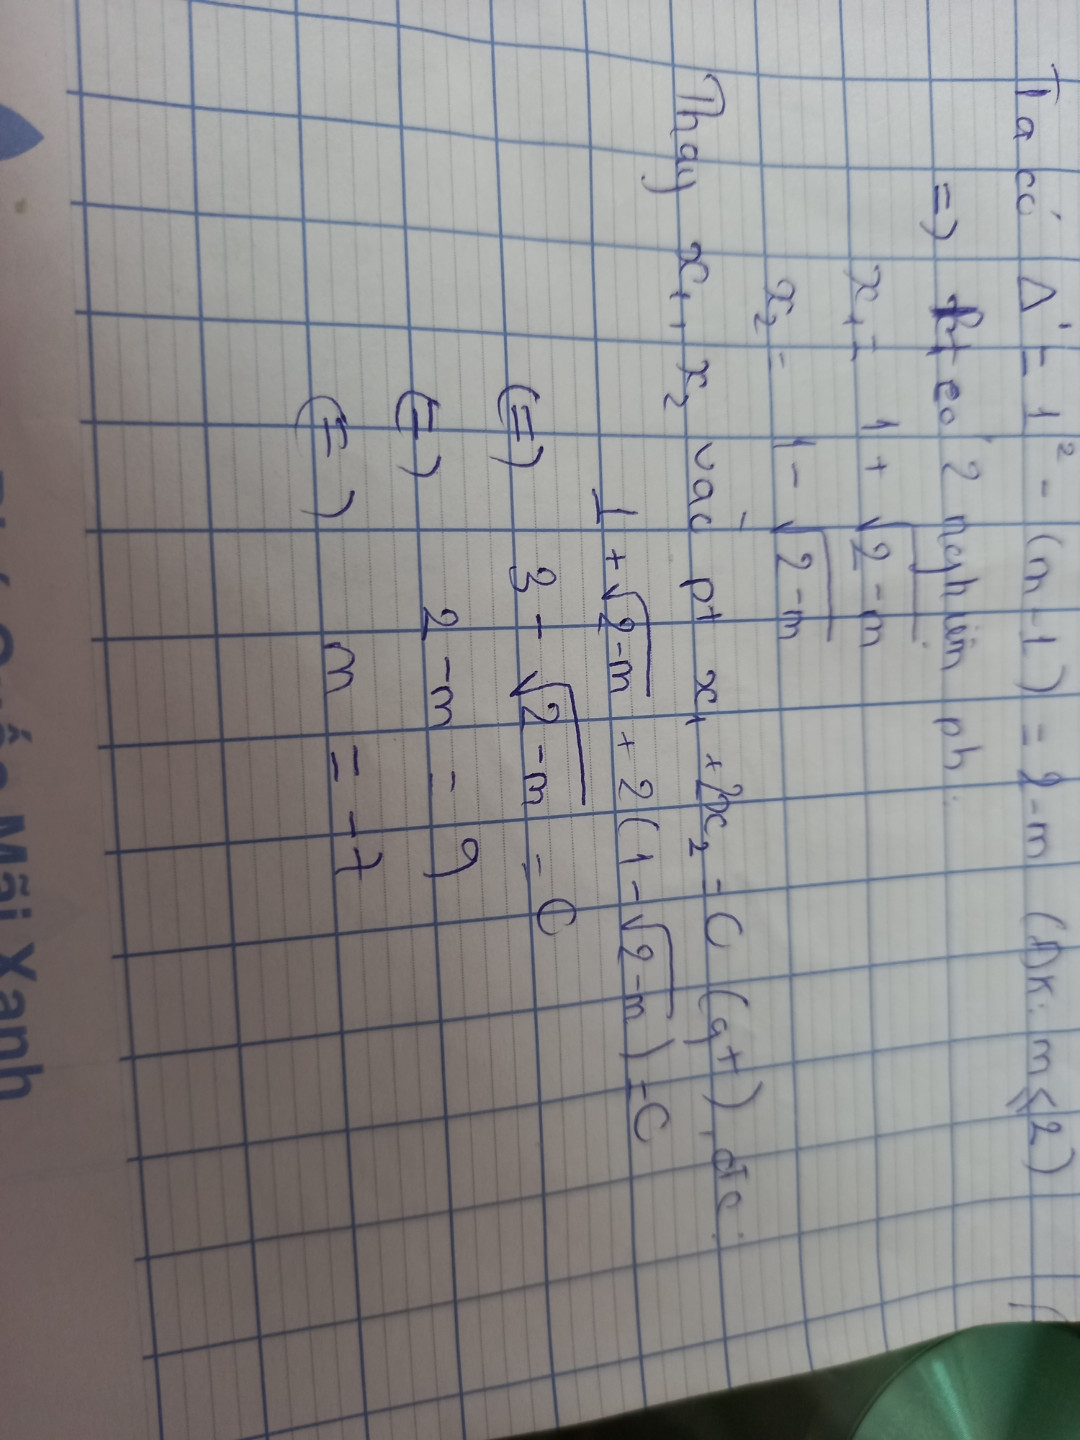 Ta có Δ' = 1² - (m-1) = 2-m (ĐK: m⩽2)
=) pt có 2 nghiệm pb:
x₁ = 1 + √2-m
x₂ = 1 - √2-m
Thay x₁, x₂ vào pt x₁ + 2x₂ = 0 (gt), đc:
1 + √2-m + 2(1 - √2-m) = 0
(=) 3 - √2-m = 0
(=) 2-m = 9
(=) m = -7
Mãi Xanh